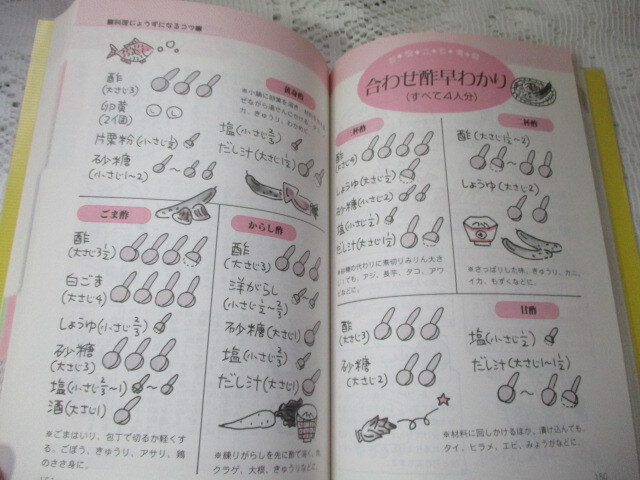 ■料理じょうずになるコツ■
黄身酢
酢
(大さじ3)
卵黄
(2個)
片栗粉(小さじ
砂糖
(小さじ1~2)
塩(小さじ
だし汁(大さじ1½)
ごま酢
酢
(大さじ3½)
白ごま
(大さじ4)
しょうゆ(小さじ⅔)
砂糖
(大さじ3)
塩(小さじ⅔~1)
酒(大さじ1)
※ごまはいり、包丁で切るか軽くす
る。ごぼう、きゅうり、アサリ、鶏
のささ身に。
からし酢
酢
(大さじ3)
洋がらし
(小さじ½~⅔)
砂糖(大さじ1)
塩(小さじ⅔)
だし汁(大さじ1)
※練りがらしを先に酢で溶く。
クラゲ、大根、きゅうりなどに。
合わせ酢早わかり
(すべて4人分)
杯酢
酢
(大さじ4)
しょうゆ(大さじ½)
砂糖(小さじ2)
塩(小さじ½)
だし汁(大さじ1½)
の代わりに煮切りみりん大さ
でも。アジ、長芋、タコ、アワ
などに。
杯酢
酢(大さじ1½~2)
しょうゆ(大さじ2)
※さっぱりした味。きゅうり、カニ、
イカ、もずくなどに。
甘酢
酢
(大さじ3)
砂糖
(大さじ2)
塩(小さじ
だし汁(大さじ1~1½)
※材料に回しかけるほか、漬け込んでも。
タイ、ヒラメ、エビ、みょうがなどに。